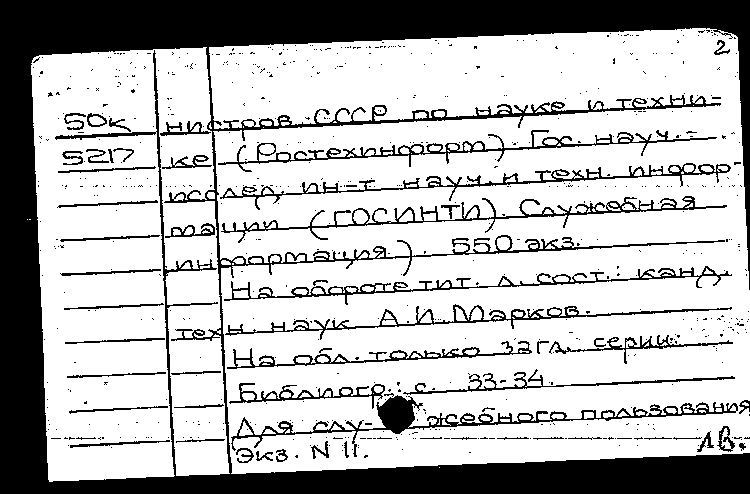 2
50к нистров СССР по науке и техни=
5217 ке (Ростехинформ). Гос. науч.-
исслед. ин-т науч. и техн. инфор-
мации (ГОСИНТИ). Служебная
информация). 550 экз.
На обороте тит. л. сост.: канд.
техн. наук А.И.Марков.
На обл. только загл. серии.
Библиогр.: с. 33-34.
Для слу- жебного пользования
Экз. N 11.